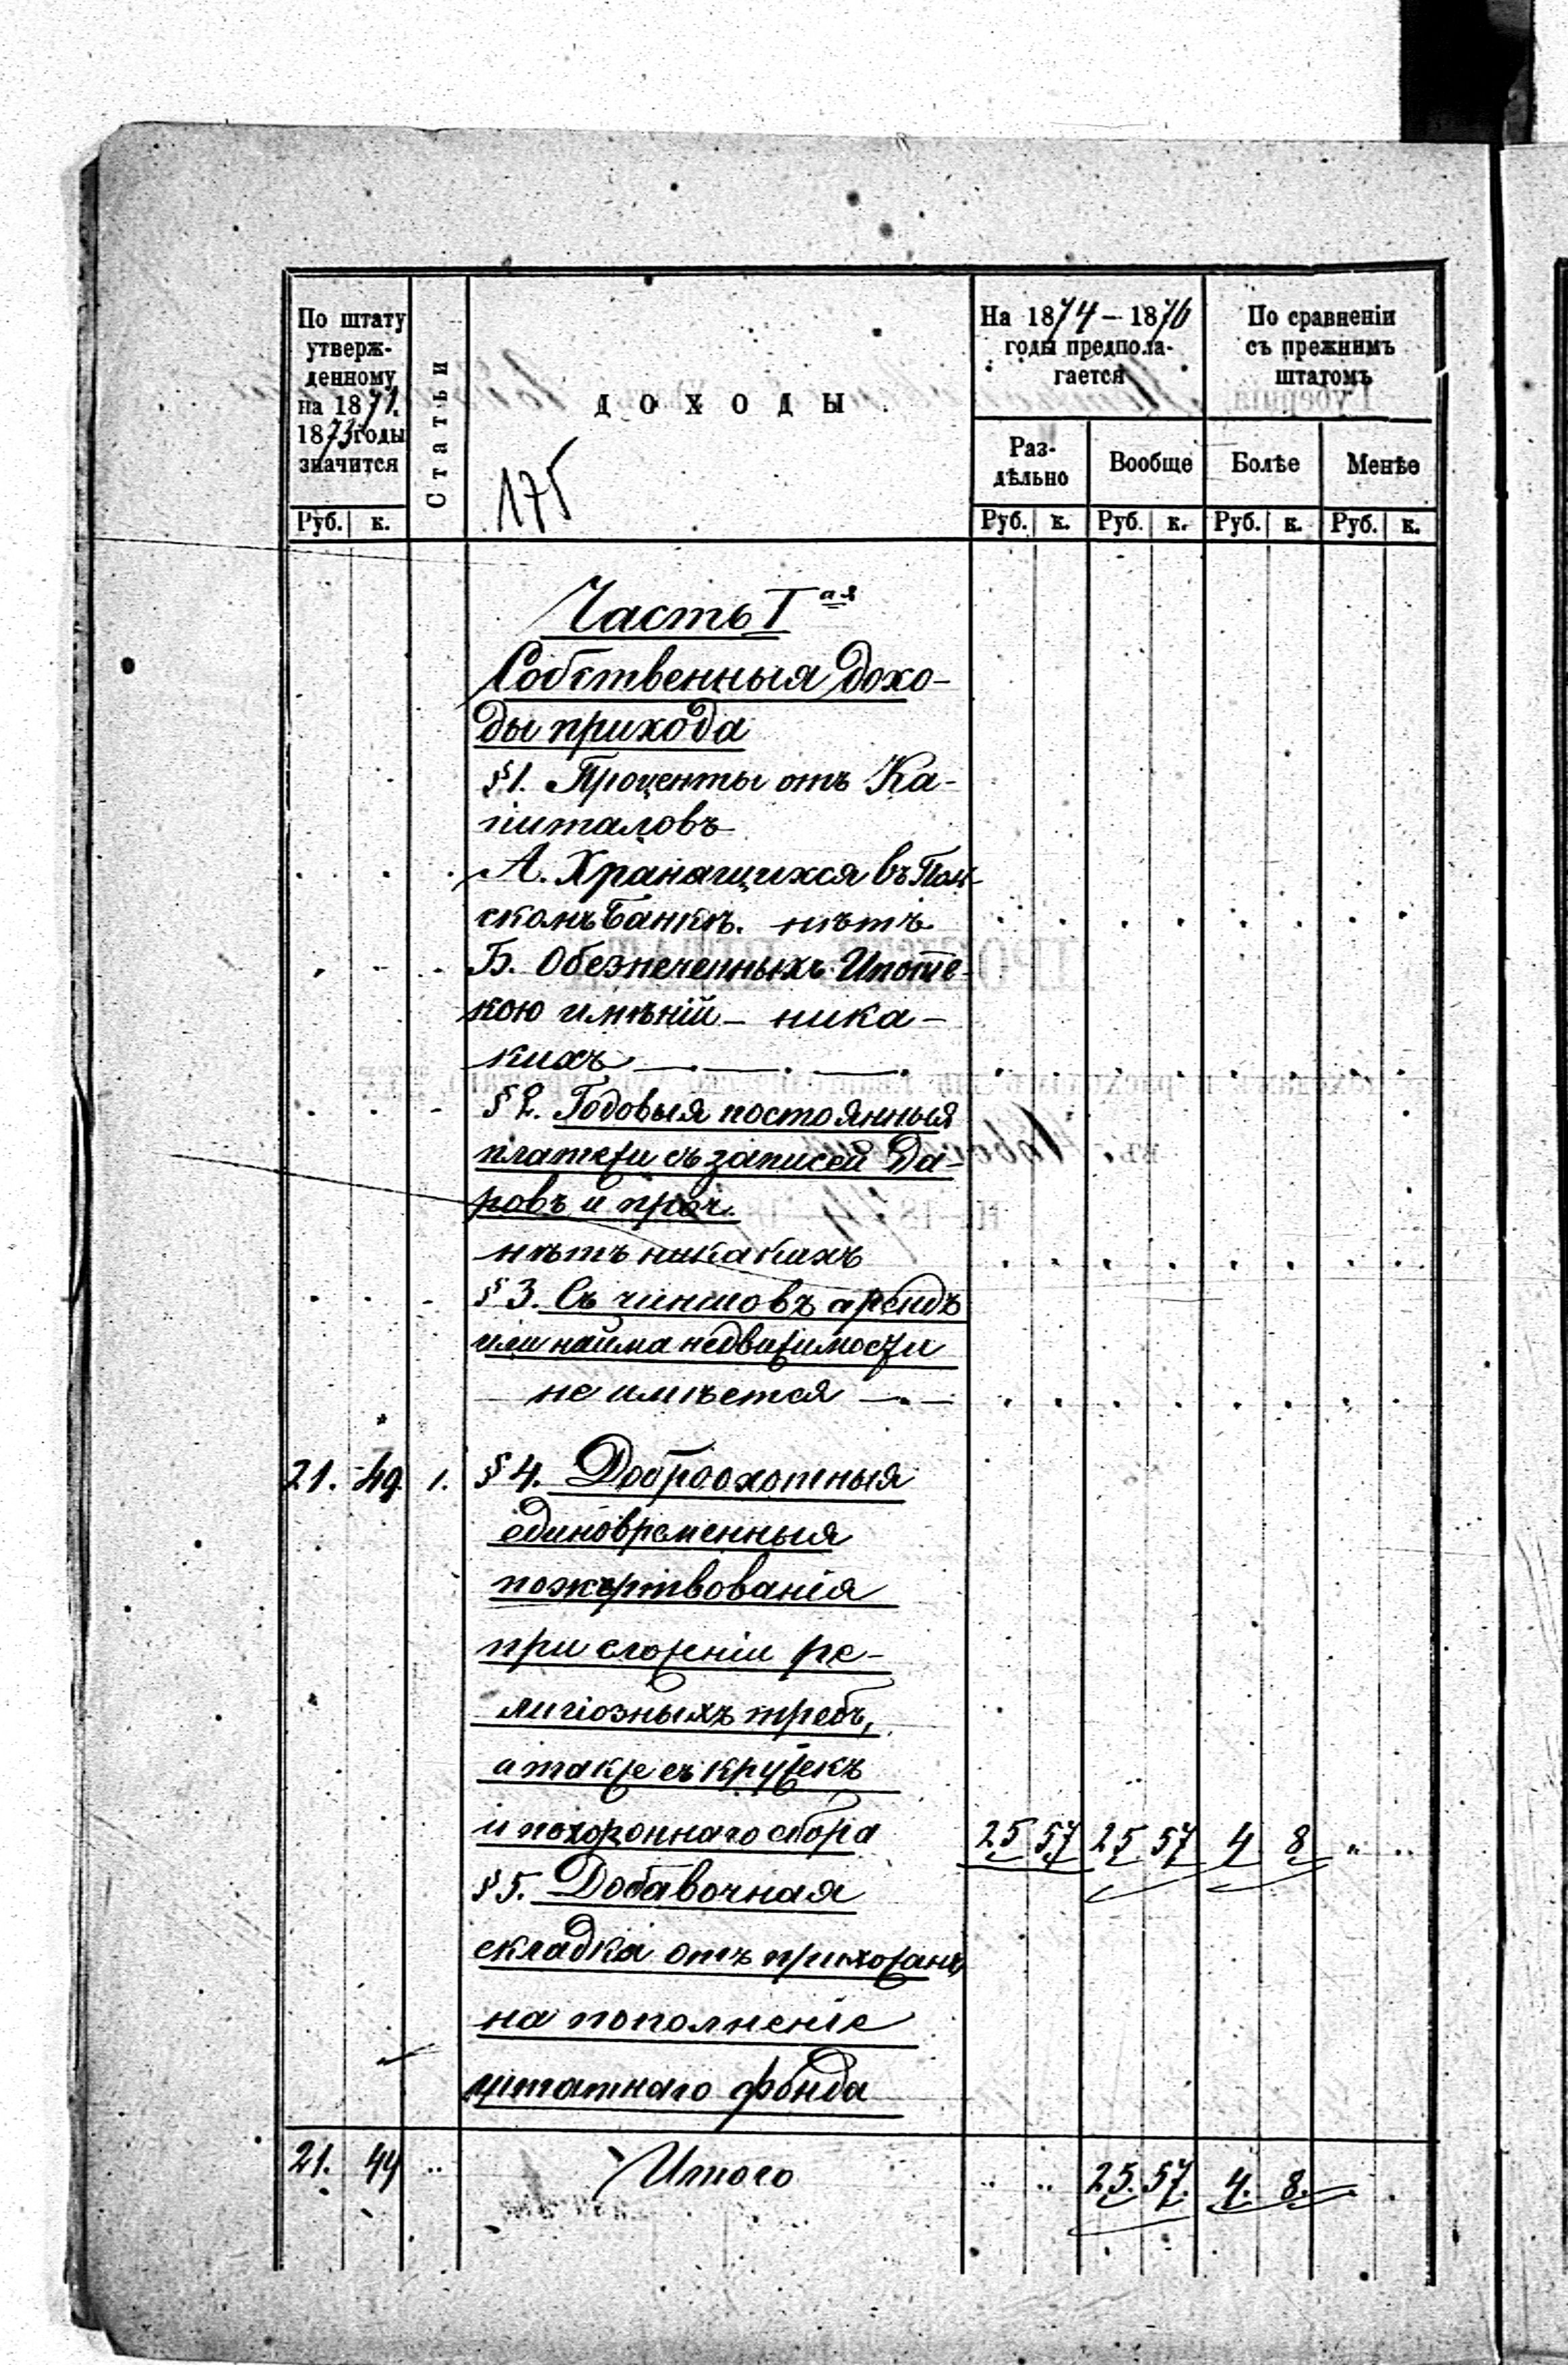 По штату
утверж-
денному
на 1871.
1873 годы
значится
Руб. к.
Статьи
ДОХОДЫ
175
На 1874 – 1876
годы предпола-
гается
Раз-
дѣльно
Вообще
Руб. к. Руб. к.
По сравненіи
съ прежнимъ
штатомъ
Болѣе
Менѣе
Руб. к. Руб. к.
Часть I ая
Собственныя дохо-
ды прихода
§ 1. Проценты отъ Ка-
питаловъ
А. Хранящихся въ Поль-
скомъ Банкѣ. нѣтъ
Б. Обезпеченныхъ Ипоте-
кою имѣній – ника-
кихъ
§ 2. Годовыя постоянныя
платежи съ записей Да-
ровъ и проч.
нѣтъ никакихъ
§ 3. Съ чиншовъ арендъ
или найма недвижимости
не имѣется
21. 49. 1. § 4. Доброохотныя
единовременныя
пожертвованія
при служеніи ре-
лигіозныхъ требъ,
а также съ кружекъ
и похороннаго сбора 25 57 25 57 4 8 " "
§ 5. Добавочная
складка отъ прихожанъ
на пополненіе
штатнаго фонда
21. 49 " Итого " " 25. 57. 4. 8.